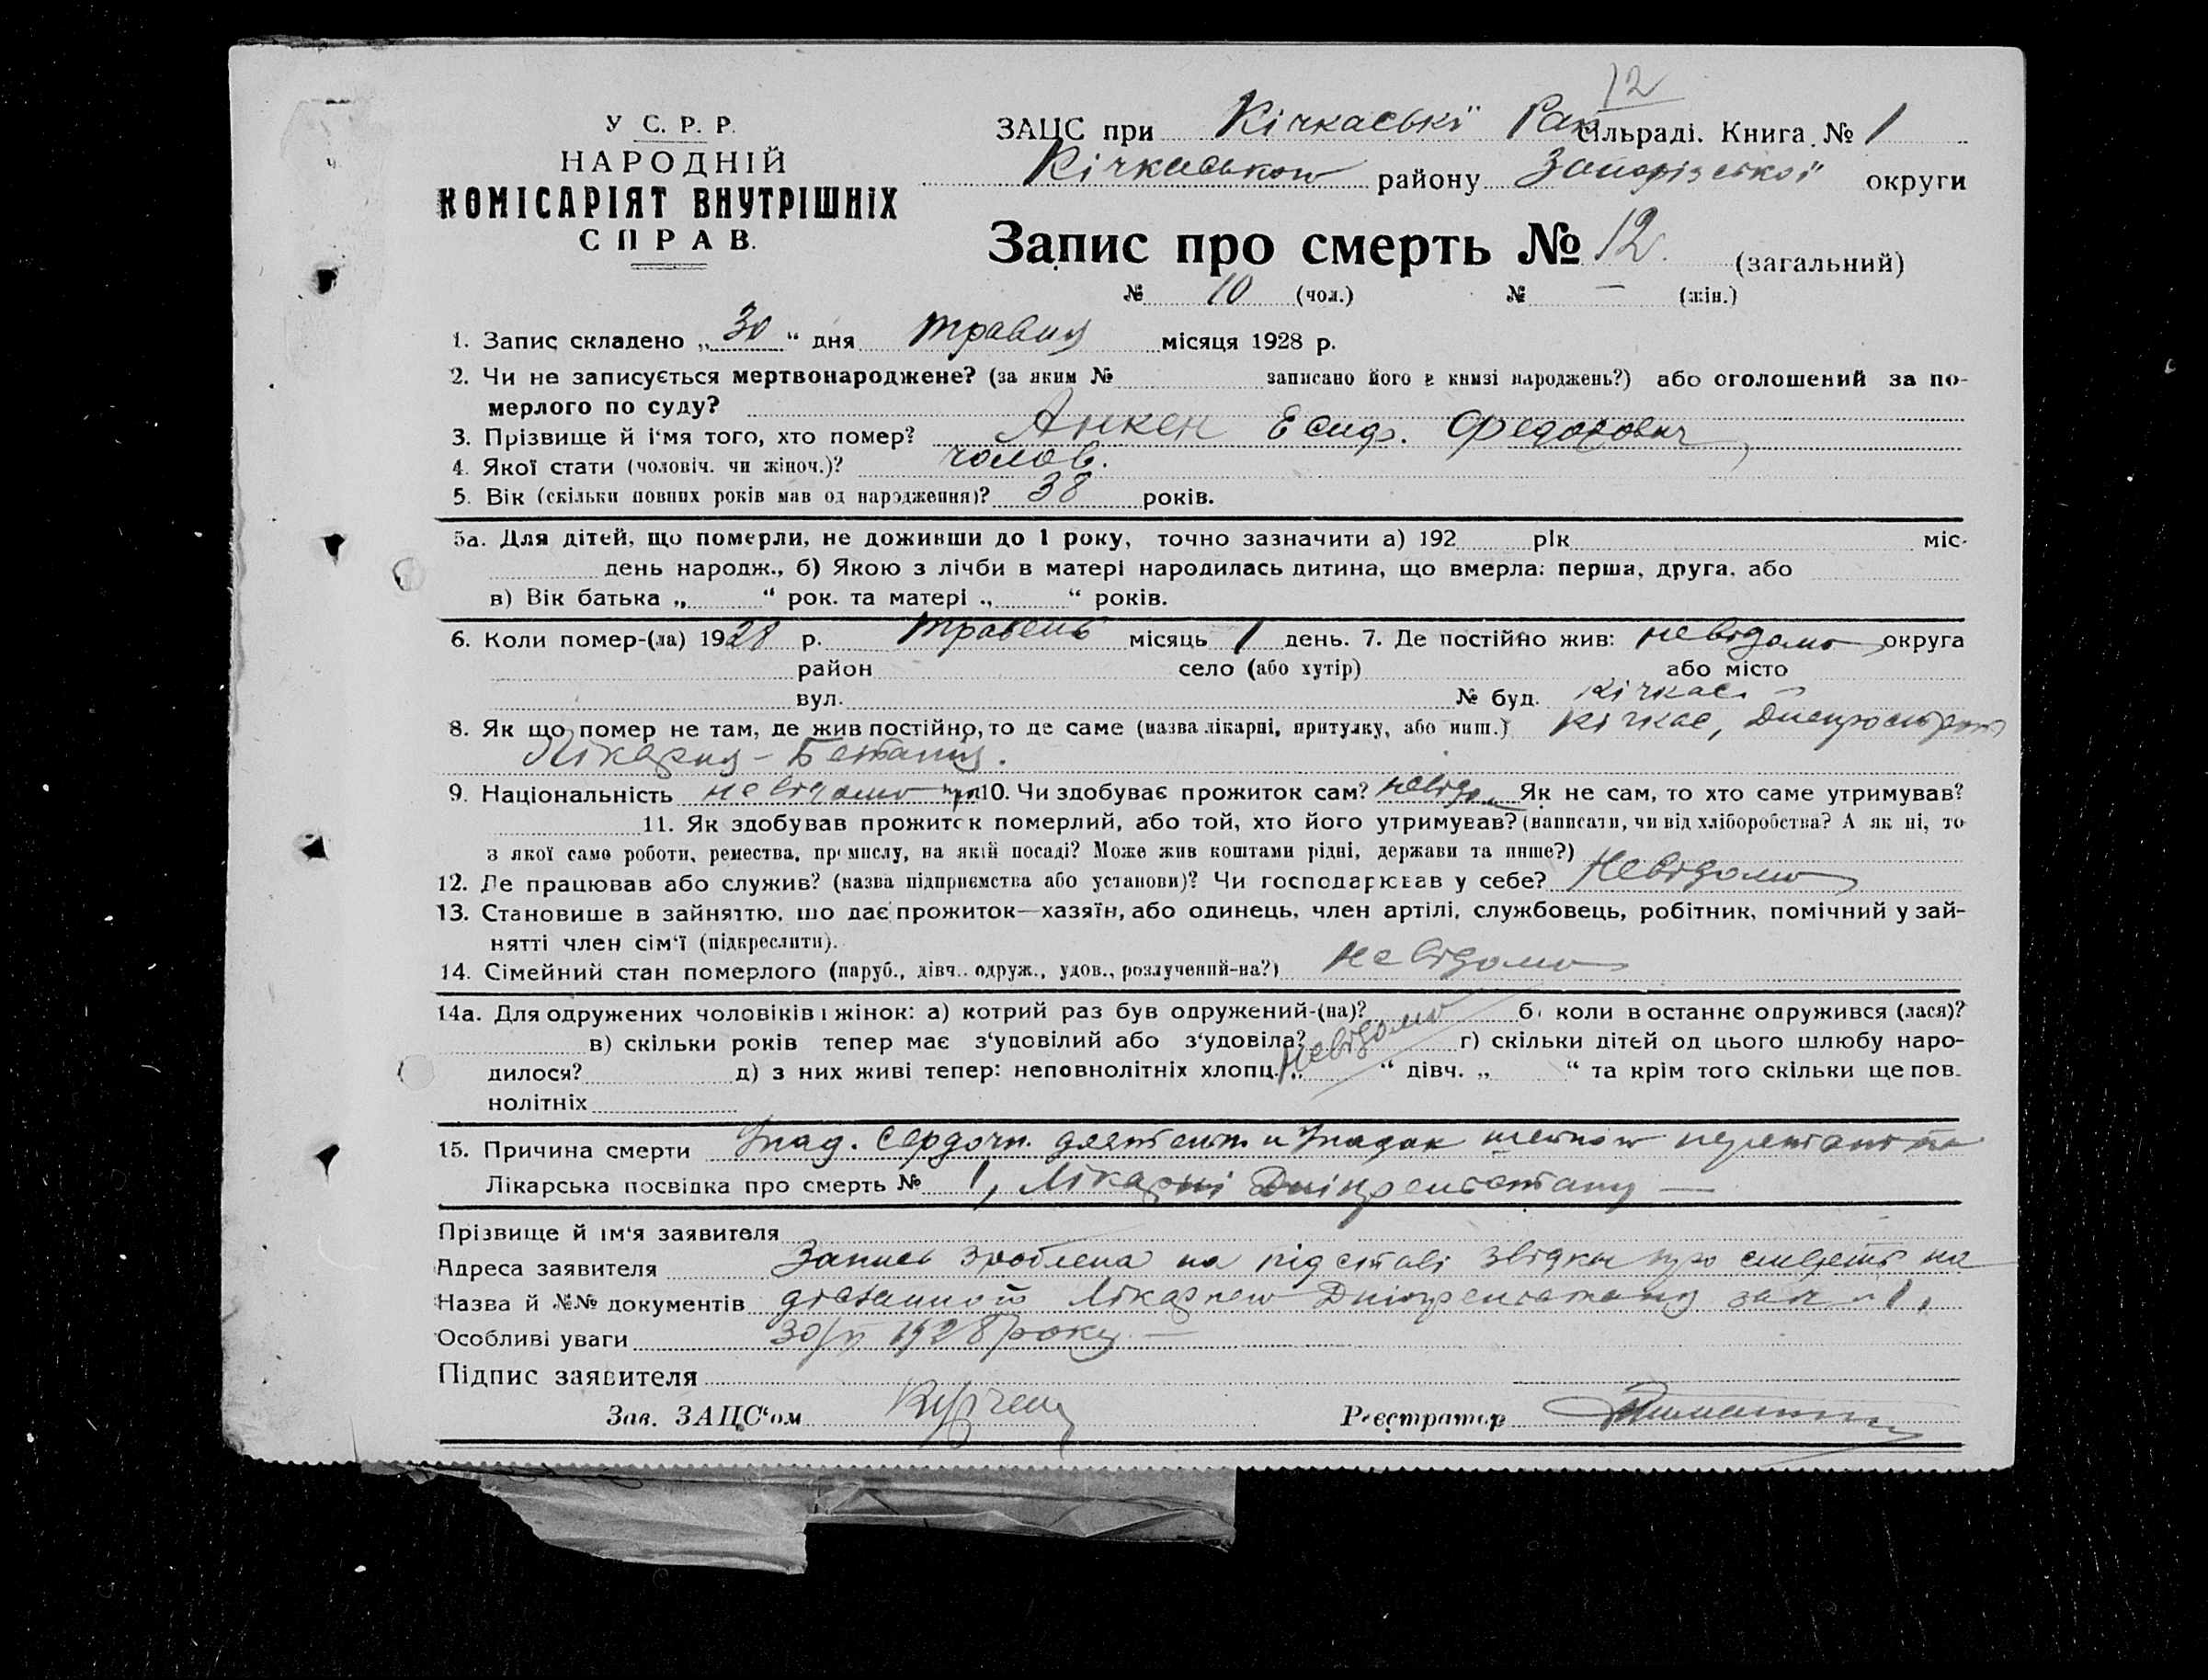 12
У С. Р. Р.
НАРОДНІЙ
КОМІСАРІЯТ ВНУТРІШНІХ
СПРАВ.
ЗАЦС при Кічкаській Рай сільраді. Книга № 1
Кічкаського району Запорізської округи
Запис про смерть № 12. (загальний)
№ 10 (чол.) № — (жін.)
1. Запис складено „30“ дня травня місяця 1928 р.
2. Чи не записується мертвонароджене? (за яким № записано його в книзі народжень?) або оголошений за по-
мерлого по суду?
3. Прізвище й і'мя того, хто помер? Анкен Федорович
4. Якої стати (чоловіч. чи жіноч.)? чолов.
5. Вік (скільки повних років мав од народження)? 38 років.
5а. Для дітей, що померли, не доживши до 1 року, точно зазначити а) 192 рік міс.
день народж., б) Якою з лічби в матері народилась дитина, що вмерла: перша, друга, або
в) Вік батька „ “ рок. та матері „ “ років.
6. Коли помер-(ла) 1928 р. травень місяць 1 день. 7. Де постійно жив: невідомо округа
район село (або хутір) або місто
вул. № буд. Кічкас
8. Як що помер не там, де жив постійно, то де саме (назва лікарні, притулку, або инш.) Кічкас,
Лікарня - Бетанія.
9. Національність невідомо 10. Чи здобуває прожиток сам? невідо. Як не сам, то хто саме утримував?
11. Як здобував прожиток померлий, або той, хто його утримував? (написати, чи від хліборобства? А як ні, то
з якої саме роботи, ремества, промислу, на якій посаді? Може жив коштами рідні, держави та инше?)
12. Де працював або служив? (назва підприємства або установи)? Чи господарював у себе? Невідомо
13. Становище в зайняттю, що дає прожиток—хазяїн, або одинець, член артілі, службовець, робітник, помічний у зай-
нятті член сім'ї (підкреслити).
14. Сімейний стан померлого (паруб., дівч., одруж., удов., розлучений-на?) невідомо
14а. Для одружених чоловіків і жінок: а) котрий раз був одружений-(на)? б) коли востаннє одружився (лася)?
в) скільки років тепер має з'удовілий або з'удовіла? невідомо г) скільки дітей од цього шлюбу наро-
дилося? д) з них живі тепер: неповнолітніх хлопц. „ “ дівч. „ “ та крім того скільки ще пов-
нолітніх
15. Причина смерти Упад. сердочн. деятельн. и Упадок
Лікарська посвідка про смерть № 1, Лікарні
Прізвище й ім'я заявителя
Адреса заявителя Запись зроблена на підставі звідки про смерть на
Назва й №№ документів Лікарнею зал 1,
Особливі уваги 30/V 1928 року. —
Підпис заявителя
Зав. ЗАЦС'ом
Реєстратор